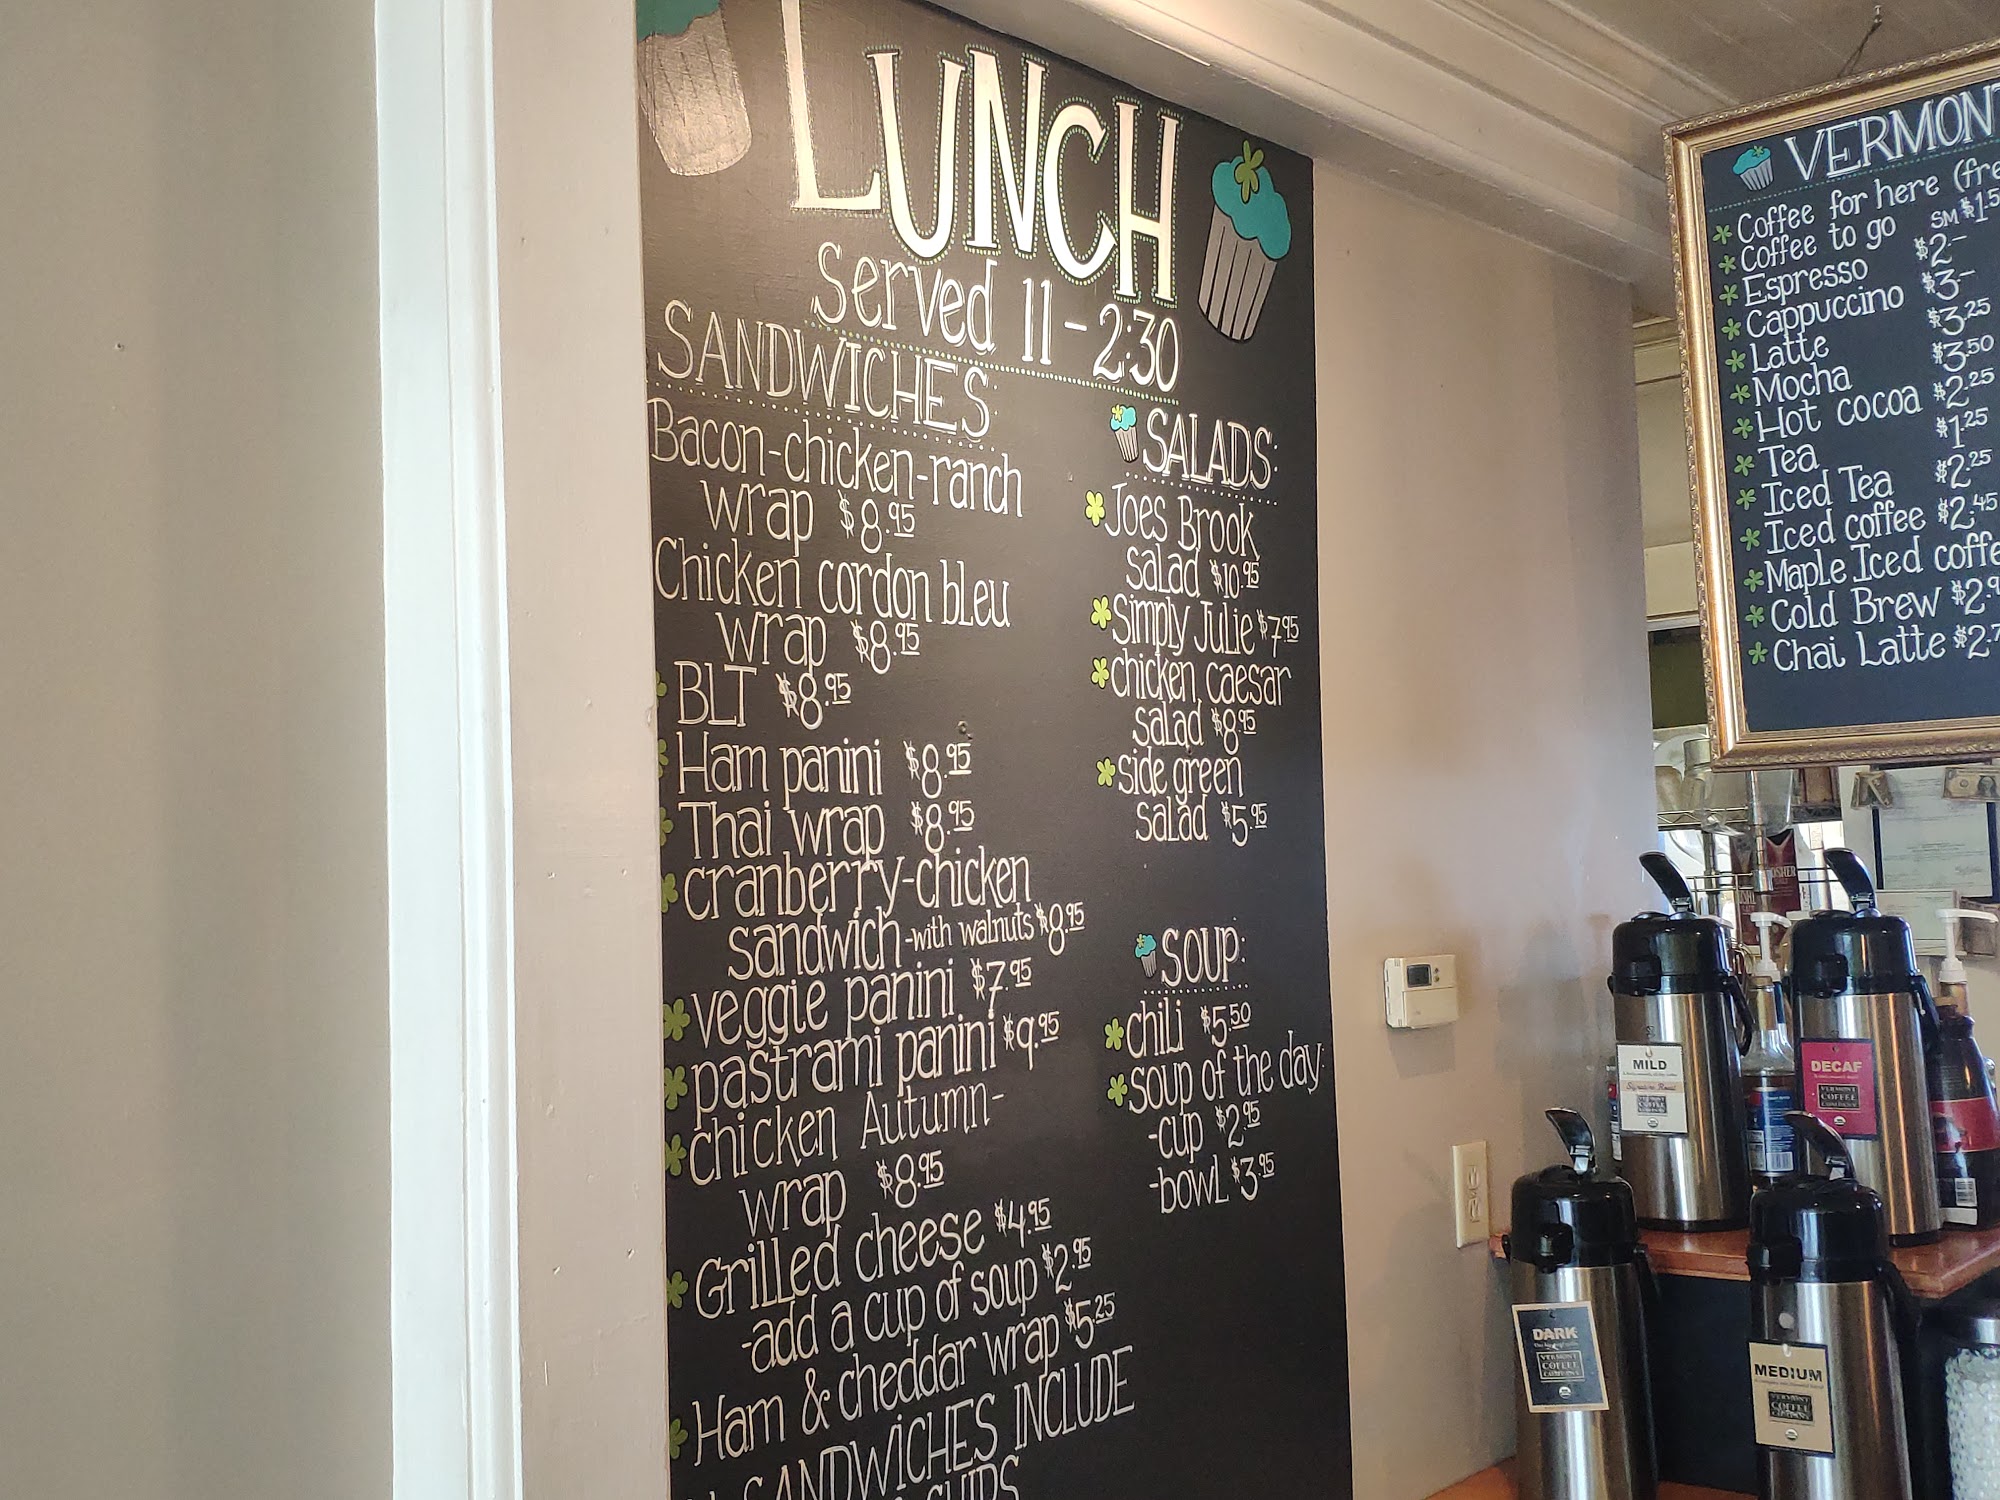 LUNCH
Served 11-2:30
SANDWICHES:
Bacon-chicken-ranch
wrap $8.95
Chicken cordon bleu
wrap $8.95
BLT $8.95
Ham panini $8.95
Thai wrap $8.95
cranberry-chicken
sandwich-with walnuts $8.95
veggie panini $7.95
pastrami panini $9.95
chicken Autumn-
wrap $8.95
Grilled cheese $4.95
-add a cup of soup $2.95
Ham & cheddar wrap $5.25
SANDWiCHES INCLUDE
CHIPS
SALADS:
Joes Brook
salad $10.95
Simply Julie $7.95
chicken caesar
salad $8.95
side green
salad $5.95
SOUP:
chili $5.50
soup of the day:
-cup $2.95
-bowl $3.95
VERMONT
Coffee for here (fre
Coffee to go SM $1.5
Espresso $2.-
Cappuccino $3.-
Latte $3.25
Mocha $3.50
Hot cocoa $2.25
Tea $1.25
Iced Tea $2.25
Iced coffee $2.45
Maple Iced coffe
Cold Brew $2.9
Chai Latte $2.7
MILD
Signature Roast
VERMONT
COFFEE
COMPANY
DECAF
VERMONT
COFFEE
COMPANY
DARK
VERMONT
COFFEE
COMPANY
MEDIUM
VERMONT
COFFEE
COMPANY